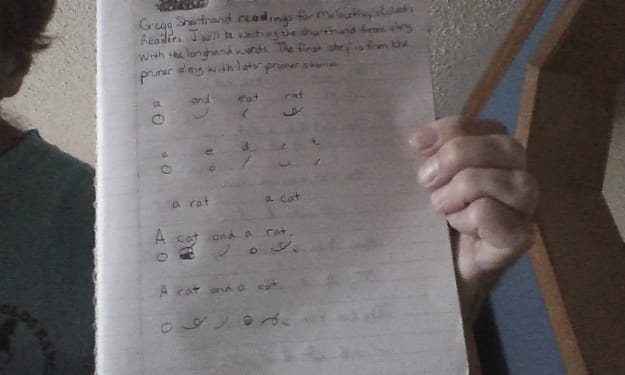 Gregg Shorthand readings for McGuffey's Eclectic
Readers. I will be writing the shorthand forms along
with the longhand words. The first step is from the
primer along with later primer stories.
a and rat
a e d r t
a rat a cat
A cat and a rat.
A rat and a cat.